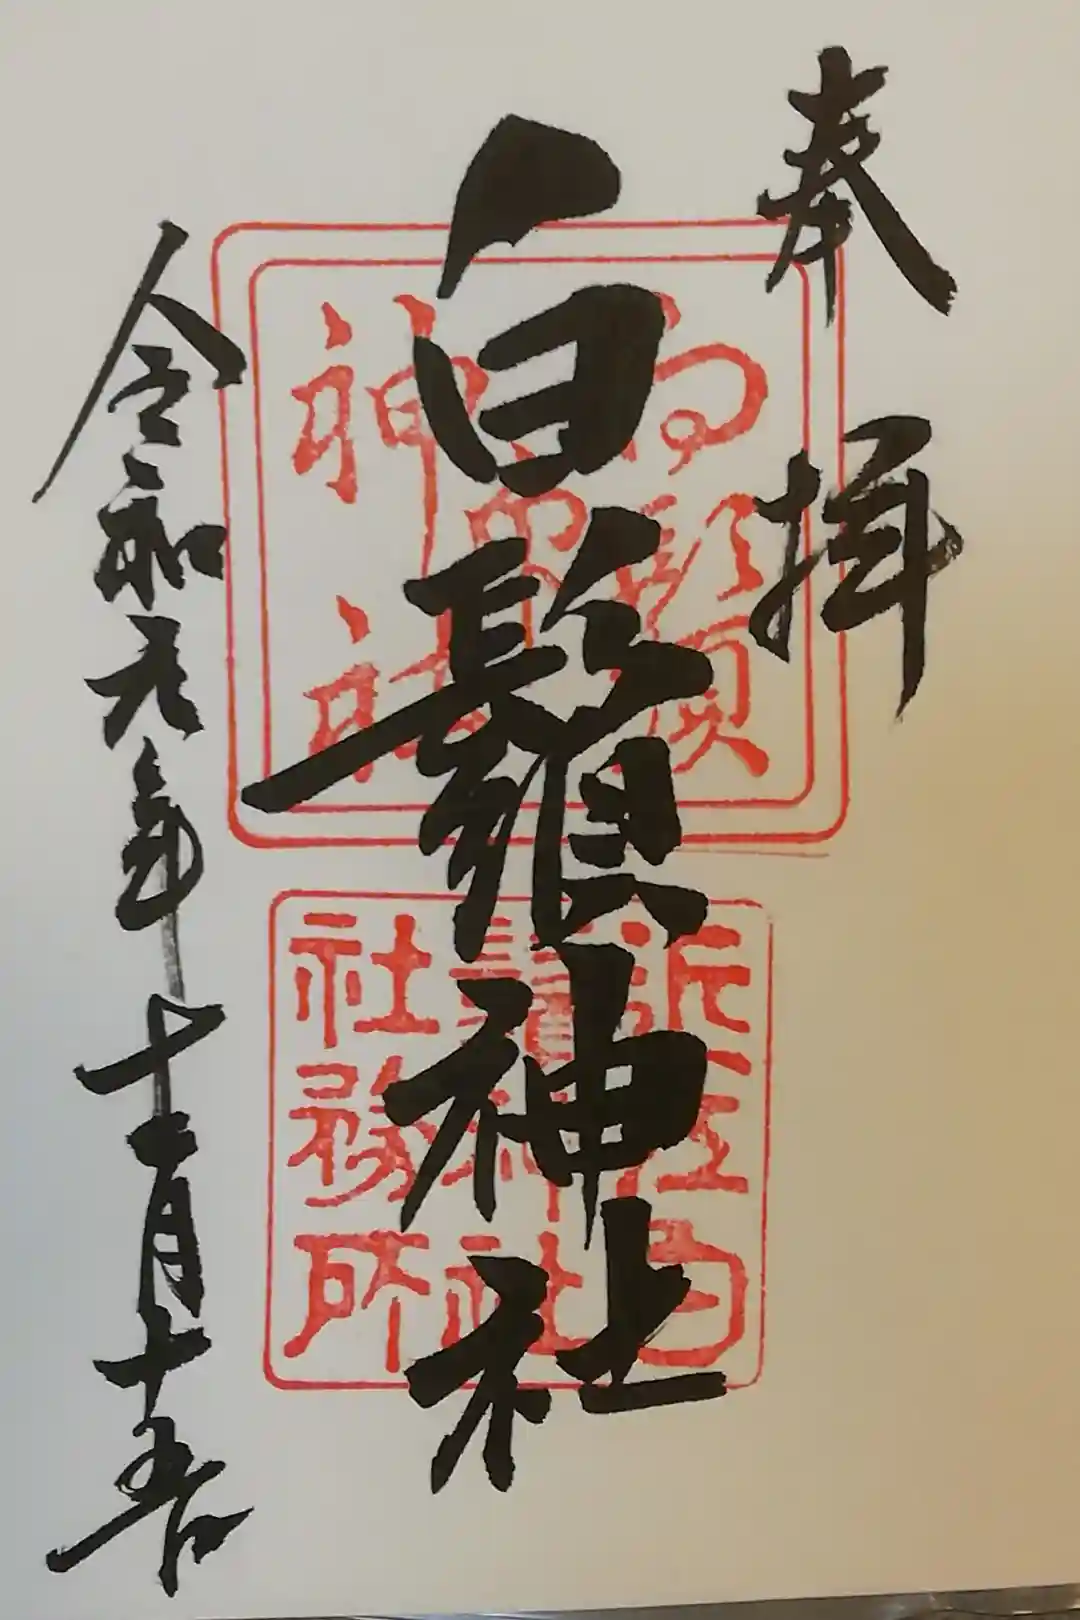 奉拝
白鬚神社
令和元年十二月十五日
近江白
鬚神社
社務所
神社